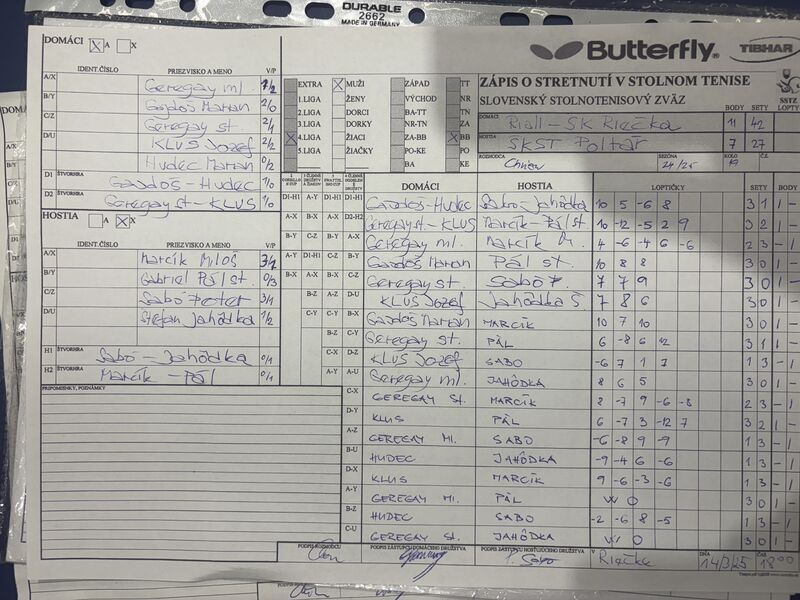 DURABLE
2662
MADE IN GERMANY
DOMÁCI X A X
IDENT.ČÍSLO PRIEZVISKO A MENO V/P
A/X Geregay ml. 1/2
B/Y Gajdoš Marian 2/0
C/Z Geregay st.
D/U KLUS Jozef 2/2
Hudec Marian 0/2
D1 ŠTVORHRA Gajdoš - Hudec 1/0
D2 ŠTVORHRA Geregay st. - KLUS 1/0
HOSTIA A X X
IDENT.ČÍSLO PRIEZVISKO A MENO V/P
A/X Marcík Miloš 3/1
B/Y Gabriel Pál st. 0/3
C/Z Sabó Peter 3/1
D/U Štefan Jahôdka 1/2
H1 ŠTVORHRA Sabó - Jahôdka 0/1
H2 ŠTVORHRA Marcík - Pál 0/1
PRIPOMIENKY, POZNÁMKY
Butterfly TIBHAR
EXTRA X MUŽI ZÁPAD TT
1.LIGA ŽENY VÝCHOD NR
2.LIGA DORCI BA-TT TN
3.LIGA DORKY NR-TN ZA
X 4.LIGA ŽIACI ZA-BB X BB
5.LIGA ŽIAČKY PO-KE PO
BA KE
ZÁPIS O STRETNUTÍ V STOLNOM TENISE
SLOVENSKÝ STOLNOTENISOVÝ ZVÄZ
SSTZ
BODY SETY LOPTY
DOMÁCI Riall - SK Riečka 11 42
HOSTIA SKST Poltár 7 27
ROZHODCA SEZÓNA 24/25 KOLO 19 Č.
DOMÁCI HOSTIA LOPTIČKY SETY BODY
D1-H1 A-Y D1-H1 Gajdoš - Hudec Sabó - Jahôdka 10 5 -6 8 3 1 1 -
A-X B-X D2-H2 Geregay st. - KLUS Marcík - Pál st 10 -12 -5 2 9 3 2 1 -
B-Y C-Z A-X Geregay ml. Marcík M. 4 -6 -4 6 -6 2 3 - 1
A-Y D1-H1 B-Y Gajdoš Marian Pál st. 10 8 8 3 0 1 -
B-X A-X C-Z Geregay st. Sabó P. 7 7 9 3 0 1 -
B-Z A-Z D-U KLUS Jozef Jahôdka Š. 7 8 6 3 0 1 -
C-Y B-X Gajdoš Marian MARCÍK 10 7 10 3 0 1 -
B-Z C-Y Geregay st. PÁL 6 -8 6 12 3 1 1 -
C-X D-Z KLUS Jozef SABO -6 7 1 7 3 1 1 -
A-Y A-U Geregay ml. JAHÔDKA 8 6 5 3 0 1 -
C-X GEREGAY St. MARCÍK 2 -7 9 -6 -8 2 3 - 1
D-Y KLUS PÁL 6 -7 3 -12 7 3 2 1 -
A-Z GEREGAY Ml. SABO -6 -8 9 -9 1 3 - 1
B-U HUDEC JAHÔDKA -9 -4 6 -6 1 3 - 1
D-X KLUS MARCÍK 9 -6 -3 -6 1 3 - 1
A-Y GEREGAY Ml. PÁL W O 3 0 1 -
B-Z HUDEC SABO -2 -6 8 -5 1 3 - 1
C-U GEREGAY St. JAHÔDKA W O 3 0 1 -
PODPIS ROZHODCU PODPIS ZÁSTUPCU DOMÁCEHO DRUŽSTVA PODPIS ZÁSTUPCU HOSŤUJÚCEHO DRUŽSTVA V Riečke DŇA 14/3/25 ČAS 18 00